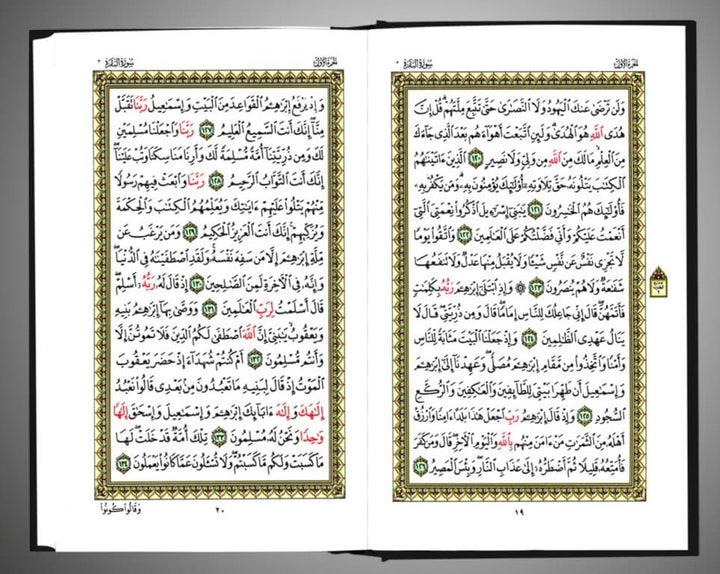 الجزء الأول
سورة البقرة ٢
وَلَن تَرْضَىٰ عَنكَ ٱلْيَهُودُ وَلَا ٱلنَّصَٰرَىٰ حَتَّىٰ تَتَّبِعَ مِلَّتَهُمْ ۗ قُلْ إِنَّ
هُدَى ٱللَّهِ هُوَ ٱلْهُدَىٰ ۗ وَلَئِنِ ٱتَّبَعْتَ أَهْوَآءَهُم بَعْدَ ٱلَّذِى جَآءَكَ
مِنَ ٱلْعِلْمِ ۙ مَا لَكَ مِنَ ٱللَّهِ مِن وَلِىٍّ وَلَا نَصِيرٍ ١٢٠ ٱلَّذِينَ ءَاتَيْنَٰهُمُ
ٱلْكِتَٰبَ يَتْلُونَهُۥ حَقَّ تِلَاوَتِهِۦٓ أُو۟لَٰٓئِكَ يُؤْمِنُونَ بِهِۦ ۗ وَمَن يَكْفُرْ بِهِۦ
فَأُو۟لَٰٓئِكَ هُمُ ٱلْخَٰسِرُونَ ١٢١ يَٰبَنِىٓ إِسْرَٰٓءِيلَ ٱذْكُرُوا۟ نِعْمَتِىَ ٱلَّتِىٓ
أَنْعَمْتُ عَلَيْكُمْ وَأَنِّى فَضَّلْتُكُمْ عَلَى ٱلْعَٰلَمِينَ ١٢٢ وَٱتَّقُوا۟ يَوْمًا
لَّا تَجْزِى نَفْسٌ عَن نَّفْسٍ شَيْـًٔا وَلَا يُقْبَلُ مِنْهَا عَدْلٌ وَلَا تَنفَعُهَا
شَفَٰعَةٌ وَلَا هُمْ يُنصَرُونَ ١٢٣ ۞ وَإِذِ ٱبْتَلَىٰٓ إِبْرَٰهِـۧمَ رَبُّهُۥ بِكَلِمَٰتٍ
فَأَتَمَّهُنَّ ۖ قَالَ إِنِّى جَاعِلُكَ لِلنَّاسِ إِمَامًا ۖ قَالَ وَمِن ذُرِّيَّتِى ۖ قَالَ لَا
يَنَالُ عَهْدِى ٱلظَّٰلِمِينَ ١٢٤ وَإِذْ جَعَلْنَا ٱلْبَيْتَ مَثَابَةً لِّلنَّاسِ
وَأَمْنًا وَٱتَّخِذُوا۟ مِن مَّقَامِ إِبْرَٰهِـۧمَ مُصَلًّى ۖ وَعَهِدْنَآ إِلَىٰٓ إِبْرَٰهِـۧمَ
وَإِسْمَٰعِيلَ أَن طَهِّرَا بَيْتِىَ لِلطَّآئِفِينَ وَٱلْعَٰكِفِينَ وَٱلرُّكَّعِ
ٱلسُّجُودِ ١٢٥ وَإِذْ قَالَ إِبْرَٰهِـۧمُ رَبِّ ٱجْعَلْ هَٰذَا بَلَدًا ءَامِنًا وَٱرْزُقْ
أَهْلَهُۥ مِنَ ٱلثَّمَرَٰتِ مَنْ ءَامَنَ مِنْهُم بِٱللَّهِ وَٱلْيَوْمِ ٱلْـَٔاخِرِ ۖ قَالَ وَمَن كَفَرَ
فَأُمَتِّعُهُۥ قَلِيلًا ثُمَّ أَضْطَرُّهُۥٓ إِلَىٰ عَذَابِ ٱلنَّارِ ۖ وَبِئْسَ ٱلْمَصِيرُ ١٢٦
١٩
الجزء الأول
سورة البقرة ٢
وَإِذْ يَرْفَعُ إِبْرَٰهِـۧمُ ٱلْقَوَاعِدَ مِنَ ٱلْبَيْتِ وَإِسْمَٰعِيلُ رَبَّنَا تَقَبَّلْ
مِنَّآ ۖ إِنَّكَ أَنتَ ٱلسَّمِيعُ ٱلْعَلِيمُ ١٢٧ رَبَّنَا وَٱجْعَلْنَا مُسْلِمَيْنِ
لَكَ وَمِن ذُرِّيَّتِنَآ أُمَّةً مُّسْلِمَةً لَّكَ وَأَرِنَا مَنَاسِكَنَا وَتُبْ عَلَيْنَآ ۖ
إِنَّكَ أَنتَ ٱلتَّوَّابُ ٱلرَّحِيمُ ١٢٨ رَبَّنَا وَٱبْعَثْ فِيهِمْ رَسُولًا
مِّنْهُمْ يَتْلُوا۟ عَلَيْهِمْ ءَايَٰتِكَ وَيُعَلِّمُهُمُ ٱلْكِتَٰبَ وَٱلْحِكْمَةَ
وَيُزَكِّيهِمْ ۚ إِنَّكَ أَنتَ ٱلْعَزِيزُ ٱلْحَكِيمُ ١٢٩ وَمَن يَرْغَبُ عَن
مِّلَّةِ إِبْرَٰهِـۧمَ إِلَّا مَن سَفِهَ نَفْسَهُۥ ۚ وَلَقَدِ ٱصْطَفَيْنَٰهُ فِى ٱلدُّنْيَا ۖ
وَإِنَّهُۥ فِى ٱلْـَٔاخِرَةِ لَمِنَ ٱلصَّٰلِحِينَ ١٣٠ إِذْ قَالَ لَهُۥ رَبُّهُۥٓ أَسْلِمْ ۖ
قَالَ أَسْلَمْتُ لِرَبِّ ٱلْعَٰلَمِينَ ١٣١ وَوَصَّىٰ بِهَآ إِبْرَٰهِـۧمُ بَنِيهِ
وَيَعْقُوبُ يَٰبَنِىَّ إِنَّ ٱللَّهَ ٱصْطَفَىٰ لَكُمُ ٱلدِّينَ فَلَا تَمُوتُنَّ إِلَّا
وَأَنتُم مُّسْلِمُونَ ١٣٢ أَمْ كُنتُمْ شُهَدَآءَ إِذْ حَضَرَ يَعْقُوبَ
ٱلْمَوْتُ إِذْ قَالَ لِبَنِيهِ مَا تَعْبُدُونَ مِنۢ بَعْدِى قَالُوا۟ نَعْبُدُ
إِلَٰهَكَ وَإِلَٰهَ ءَابَآئِكَ إِبْرَٰهِـۧمَ وَإِسْمَٰعِيلَ وَإِسْحَٰقَ إِلَٰهًا
وَٰحِدًا وَنَحْنُ لَهُۥ مُسْلِمُونَ ١٣٣ تِلْكَ أُمَّةٌ قَدْ خَلَتْ ۖ لَهَا
مَا كَسَبَتْ وَلَكُم مَّا كَسَبْتُمْ ۖ وَلَا تُسْـَٔلُونَ عَمَّا كَانُوا۟ يَعْمَلُونَ ١٣٤
٢٠
وَقَالُوا۟ كُونُوا۟